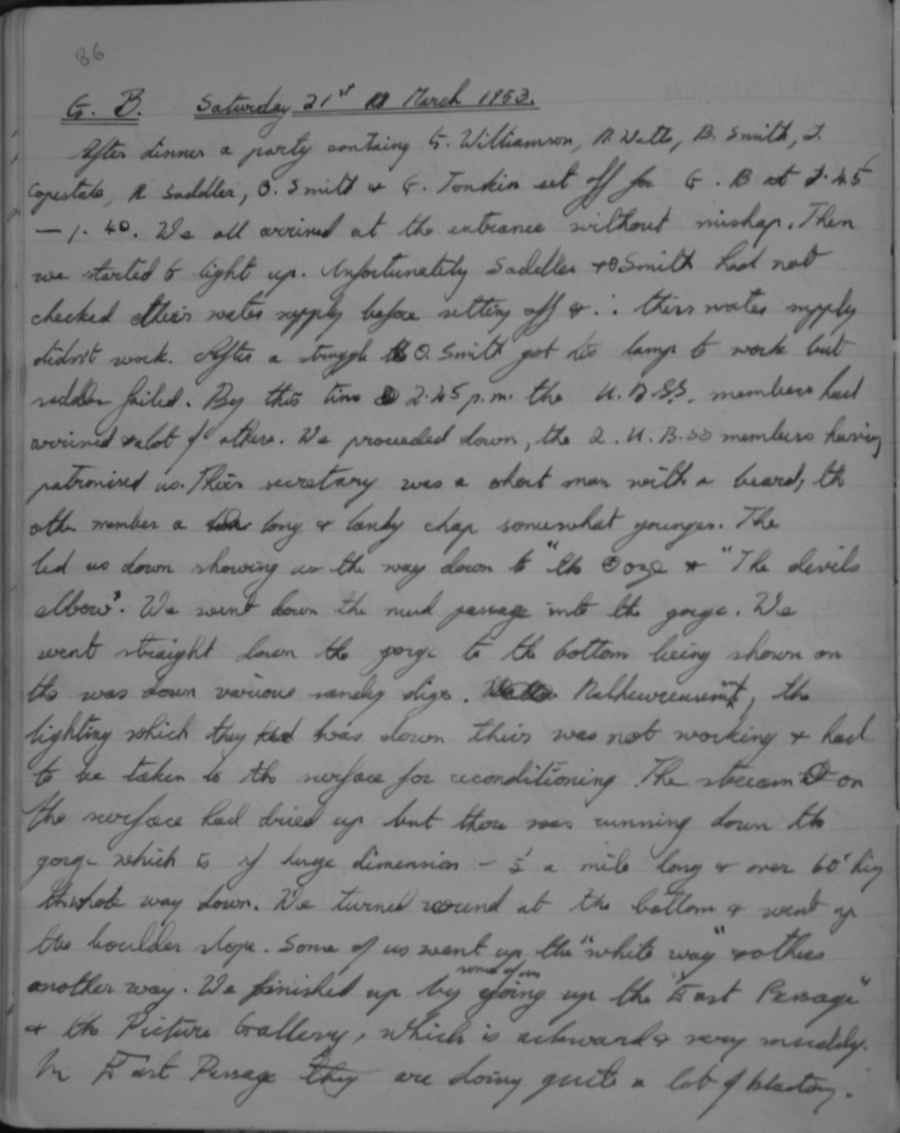 86
G. B. Saturday 21st March 1953.
After dinner a party containg G. Williamson, R Watts, B. Smith, J.
Copestake, R Saddler, O. Smith & G. Tonkin set off for G. B at 1.45
— 1.40. We all arrived at the entrance without mishap. Then
we started to light up. Unfortunately Saddler & O Smith had not
checked their water supply before setting off & ∴ their water supply
didn't work. After a struggle O. Smith got his lamp to work but
saddler failed. By this time 2.45 p.m. the U.B.S.S. members had
arrived & alot of others. We proceeded down, the 2. U.B.SS members having
patronised us. Their secretary was a short man with a beard, the
other member a long & lanky chap somewhat younger. The
led us down showing us the way down to "the Gorge & "The devils
elbow". We went down the mud passage into the gorge. We
went straight down the gorge to the bottom being shown on
the was down various digs. the
lighting which they had was down their was not working & had
to be taken to the surface for reconditioning. The stream on
the surface had dried up but there was running down the
gorge which is of huge dimension - ½ a mile long & over 60' hig
the whole way down. We turned round at the bottom & went up
the boulder slope. Some of us went up the "white way" & others
another way. We finished up by some of us going up the "East Passage"
& the Picture Gallery, which is ackward & very muddy.
In East Passage they are doing quite a lot of blasting.